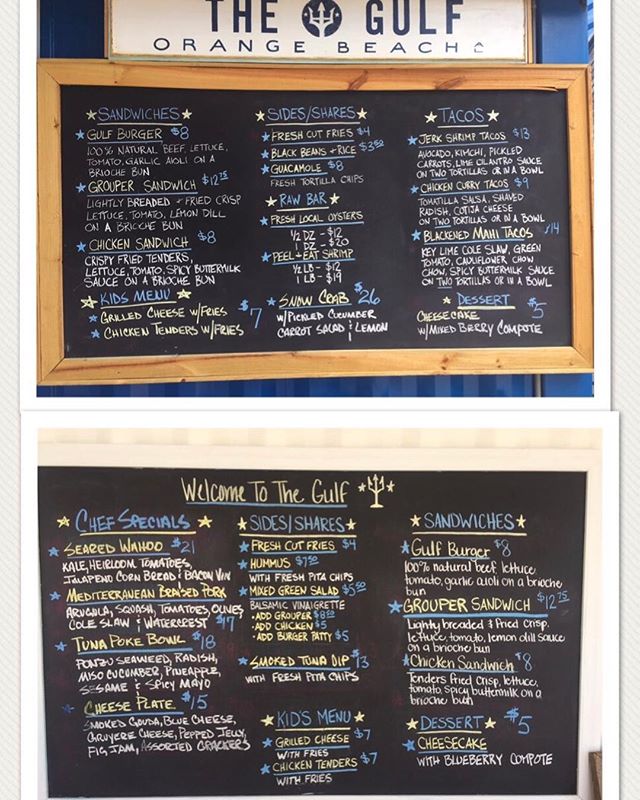 THE GULF
ORANGE BEACH
SANDWICHES
GULF BURGER $8
100% NATURAL BEEF, LETTUCE,
TOMATO, GARLIC AIOLI ON A
BRIOCHE BUN
GROUPER SANDWICH $12.75
LIGHTLY BREADED + FRIED CRISP
LETTUCE, TOMATO, LEMON DILL
ON A BRIOCHE BUN
CHICKEN SANDWICH $8
CRISPY FRIED TENDERS,
LETTUCE, TOMATO, SPICY BUTTERMILK
SAUCE ON A BRIOCHE BUN
KIDS MENU
GRILLED CHEESE W/FRIES
CHICKEN TENDERS W/FRIES $7
SIDES/SHARES
FRESH CUT FRIES $4
BLACK BEANS + RICE $3.50
GUACAMOLE $8
FRESH TORTILLA CHIPS
RAW BAR
FRESH LOCAL OYSTERS
1/2 DZ - $12
1 DZ - $20
PEEL + EAT SHRIMP
1/2 LB - $12
1 LB - $19
SNOW CRAB $26
W/PICKLED CUCUMBER
CARROT SALAD & LEMON
TACOS
JERK SHRIMP TACOS $13
AVOCADO, KIMCHI, PICKLED
CARROTS, LIME CILANTRO SAUCE
ON TWO TORTILLAS OR IN A BOWL
CHICKEN CURRY TACOS $9
TOMATILLA SALSA, SHAVED
RADISH, COTIJA CHEESE
ON TWO TORTILLAS OR IN A BOWL
BLACKENED MAHI TACOS $14
KEY LIME COLE SLAW, GREEN
TOMATO, CAULIFLOWER CHOW
CHOW, SPICY BUTTERMILK SAUCE
ON TWO TORTILLAS OR IN A BOWL
DESSERT $5
CHEESECAKE
W/MIXED BERRY COMPOTE
Welcome To The Gulf
CHEF SPECIALS
SEARED WAHOO $21
KALE, HEIRLOOM TOMATOES,
JALAPENO CORN BREAD & BACON VIN
MEDITERRANEAN BRAISED PORK
ARUGULA, SQUASH, TOMATOES, OLIVES
COLE SLAW & WATERCREST $17
TUNA POKE BOWL $18
PONZU SEAWEED, RADISH,
MISO CUCUMBER, PINEAPPLE,
SESAME & SPICY MAYO
CHEESE PLATE $15
SMOKED GOUDA, BLUE CHEESE,
GRUYERE CHEESE, PEPPED JELLY,
FIG JAM, ASSORTED CRACKERS
SIDES/SHARES
FRESH CUT FRIES $4
HUMMUS $7.50
WITH FRESH PITA CHIPS
MIXED GREEN SALAD $5.50
BALSAMIC VINAIGRETTE
- ADD GROUPER $8.50
- ADD CHICKEN $5
- ADD BURGER PATTY $5
SMOKED TUNA DIP $13
WITH FRESH PITA CHIPS
KID'S MENU
GRILLED CHEESE $7
WITH FRIES
CHICKEN TENDERS $7
WITH FRIES
SANDWICHES
Gulf Burger $8
100% natural beef, lettuce,
tomato, garlic aioli on a brioche
bun
GROUPER SANDWICH $12.75
Lightly breaded & fried crisp,
lettuce, tomato, lemon dill sauce
on a brioche bun
Chicken Sandwich $8
Tenders fried crisp, lettuce,
tomato, spicy buttermilk on a
brioche bun
DESSERT $5
CHEESECAKE
WITH BLUEBERRY COMPOTE